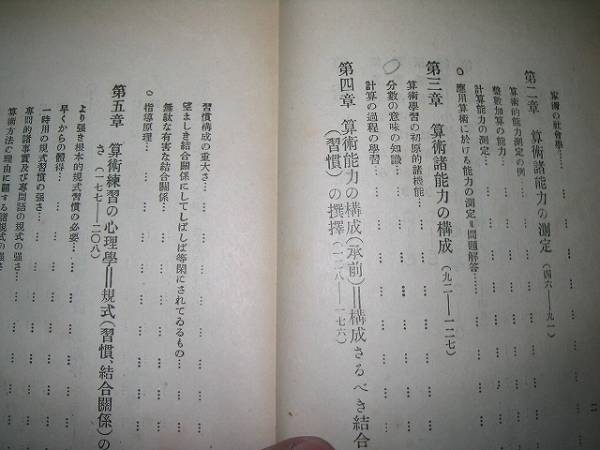 算術の社會學…
第二章 算術諸能力の測定(四六—九一)
算術的能力測定の例…
整數加算の能力…
計算能力の測定…
應用算術に於ける能力の測定=問題解答…
第三章 算術諸能力の構成(九二—一二七)
算術學習の初原的諸機能…
分數の意味の知識…
計算の過程の學習…
第四章 算術能力の構成(承前)=構成さるべき結合
(習慣)の撰擇(一二八—一七六)
習慣構成の重大さ…
望ましき結合關係にしてしばしば等閑にされてゐるもの…
無駄な有害な結合關係…
指導原理…
第五章 算術練習の心理學=規式(習慣、結合關係)の
さ(一七七—二〇八)
より强き根本的規式習慣の必要…
早くからの體得…
一時用の規式習慣の强さ…
專問的諸事實及び專問語の規式の强さ…
算術方法の理由に關する諸規式の强さ